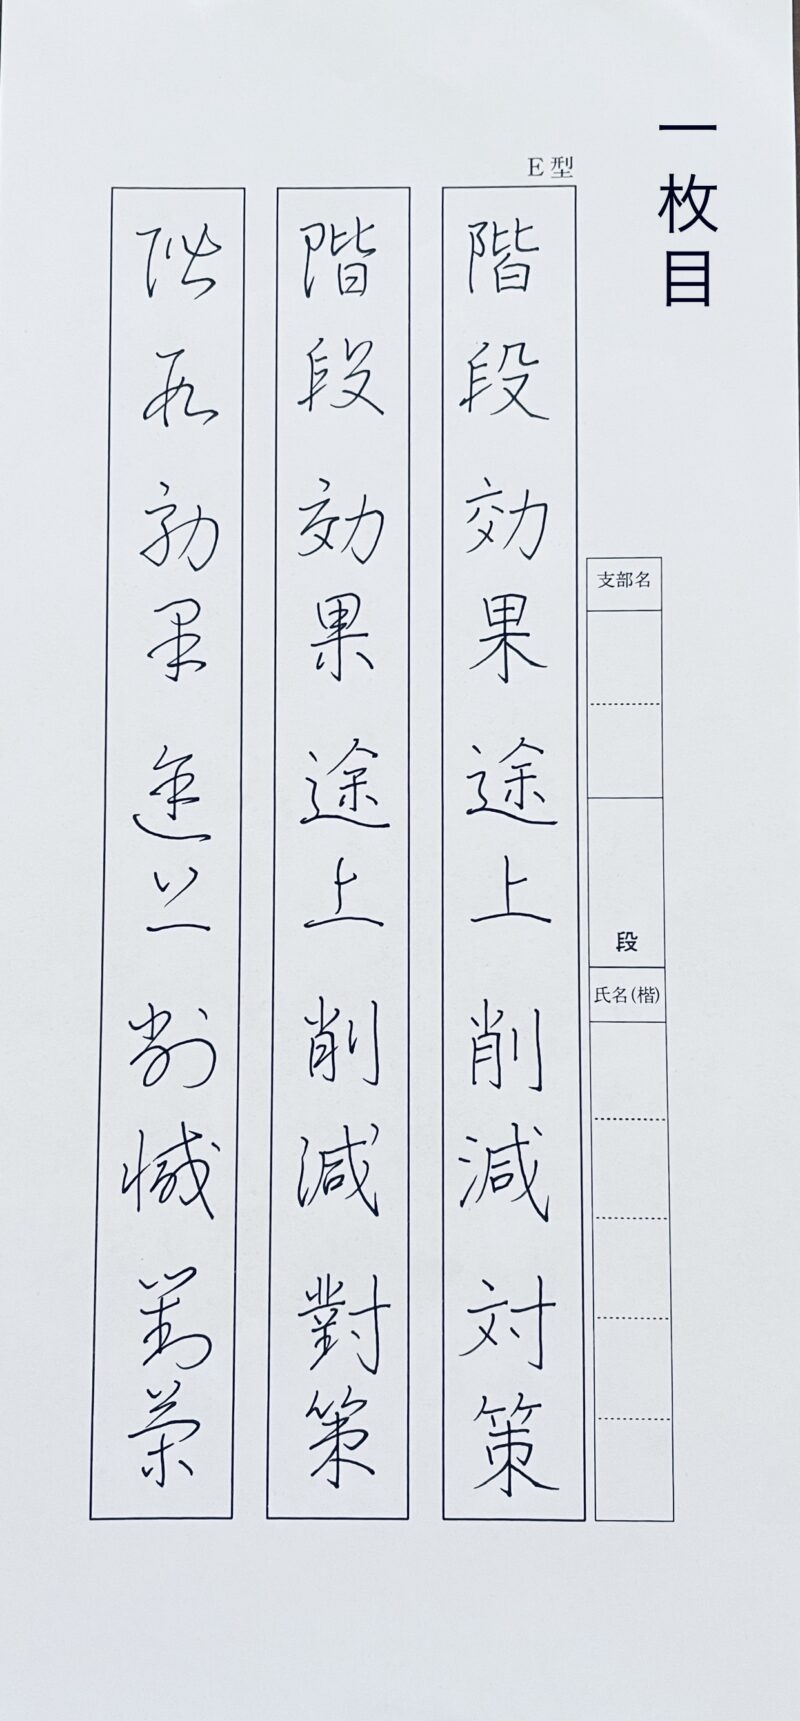 一枚目
E型
支部名
段
氏名(楷)
階段効果途上削減対策
階段効果途上削減對策
階段効果途上削減對策